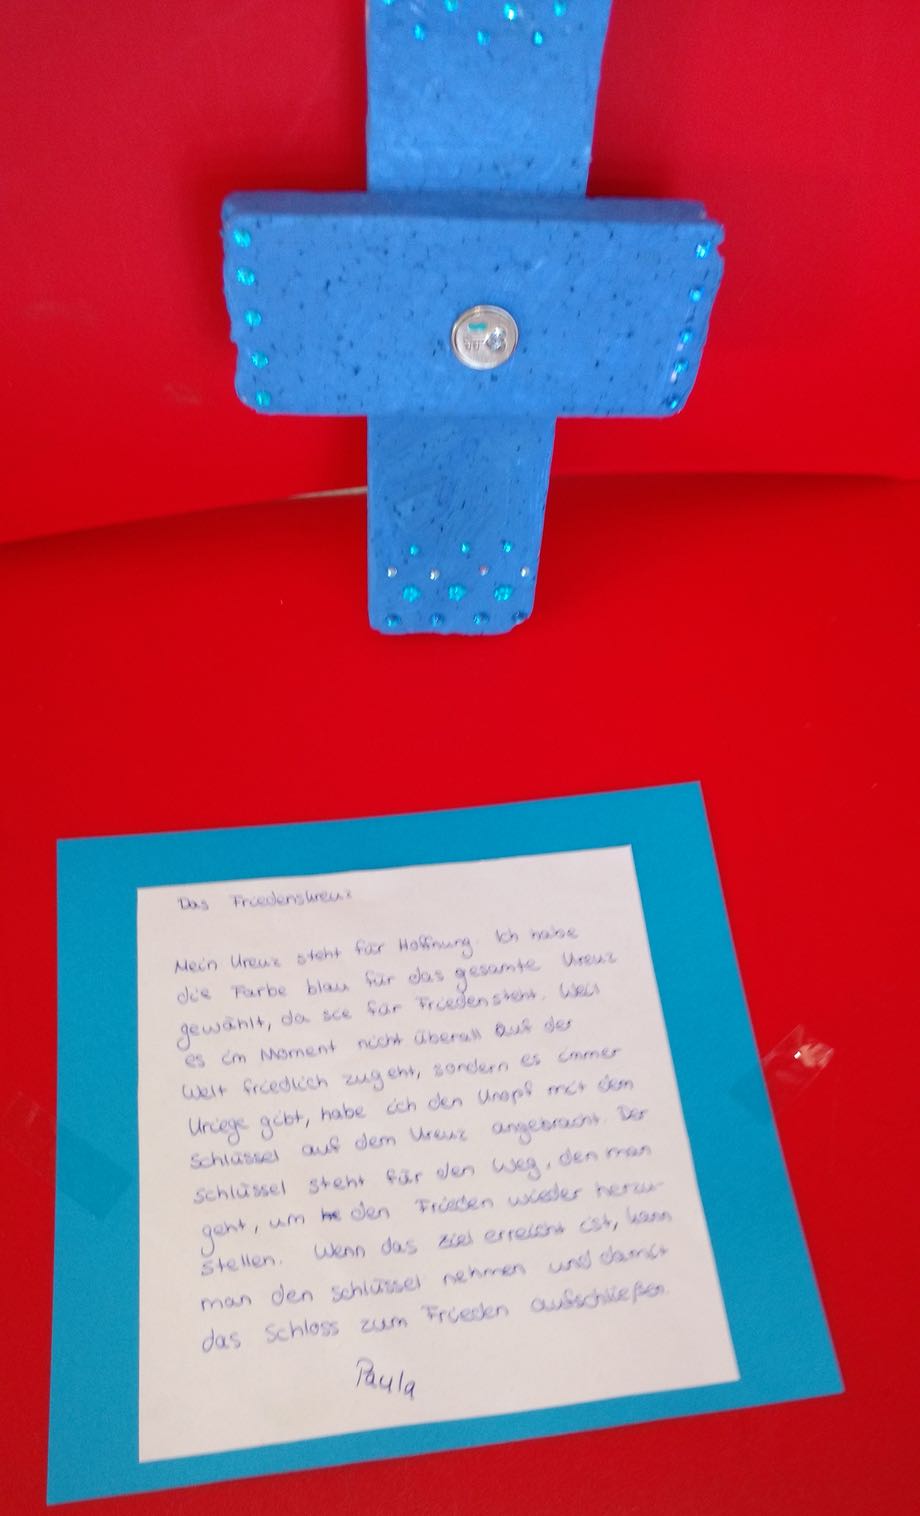 Das Friedenskreuz
Mein Kreuz steht für Hoffnung. Ich habe
die Farbe blau für das gesamte Kreuz
gewählt, da sie für Frieden steht. Weil
es im Moment nicht überall auf der
Welt friedlich zugeht, sondern es immer
Kriege gibt, habe ich den Knopf mit dem
Schlüssel auf dem Kreuz angebracht. Der
Schlüssel steht für den Weg, den man
geht, um den Frieden wieder herzu-
stellen. Wenn das Ziel erreicht ist, kann
man den Schlüssel nehmen und damit
das Schloss zum Frieden aufschließen.
Paula